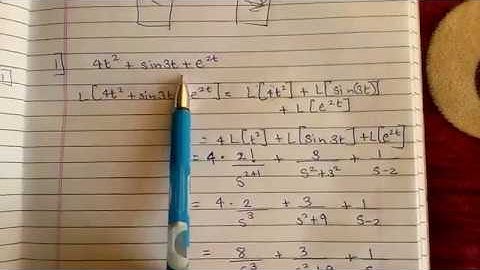 1] 4t² + sin3t + e^2t
L[4t² + sin3t + e^2t] = L[4t²] + L[sin(3t)]
+ L[e^2t]
= 4L[t²] + L[sin3t] + L[e^2t]
= 4 · 2!/s^2+1 + 3/s²+3² + 1/s-2
= 4 · 2/s³ + 3/s²+9 + 1/s-2
= 8/s³ + 3/s²+9 + 1/s-2